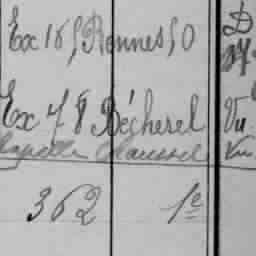 Ex 16 Rennes, O D
Ex 48 Bécherel Vu
Chapelle Chaussée Vu
362 1e